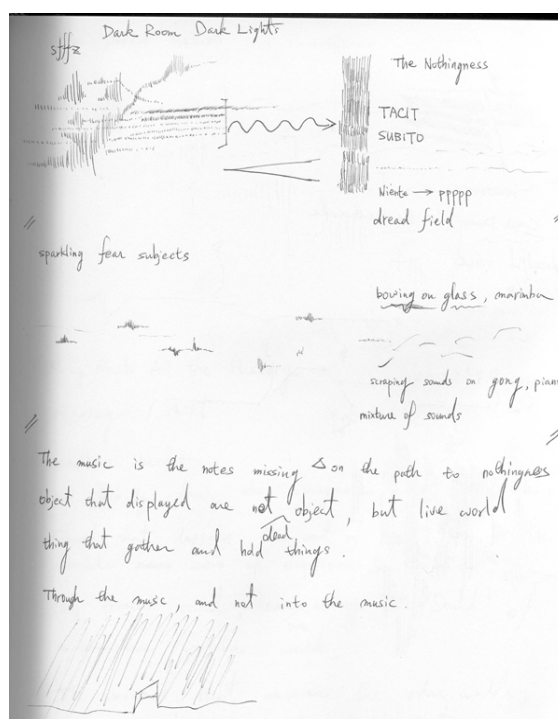 Dark Room Dark Lights
sffz
The Nothingness
TACIT
SUBITO
Niente → ppppp
dread field
sparkling fear subjects
bowing on glass, marimba
scraping sounds on gong, pian
mixture of sounds
The music is the notes missing Δ on the path to nothingness
object that displayed are not object, but live world
dead
thing that gather and hold things.
Through the music, and not into the music.